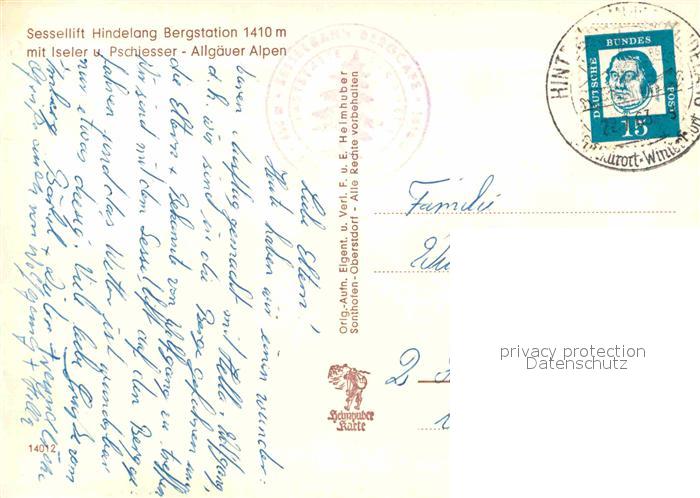 Sessellift Hindelang Bergstation 1410 m
mit Iseler u. Pschiesser - Allgäuer Alpen
Liebe Eltern!
Heut haben wir einen wunder-
baren Ausflug gemacht mit Hella, Wolfgang,
d. h. wir sind in die Berge gefahren um
die Eltern + Bekannte von Wolfgang zu treffen
Wir sind mit dem Sessellift auf den Berg ge-
fahren und das Wetter ist wunderbar
nur etwas diesig. Viel liebe Grüße von
Bärbel + Dieter
Grüße auch von Wolfgang + Hella
Orig.-Aufn. Eigent. u. Verl. F. u. E. Heimhuber
Sonthofen-Oberstdorf - Alle Rechte vorbehalten
Heimhuber
Karte
14012
DEUTSCHE
BUNDES
POST
15
Familie
privacy protection
Datenschutz